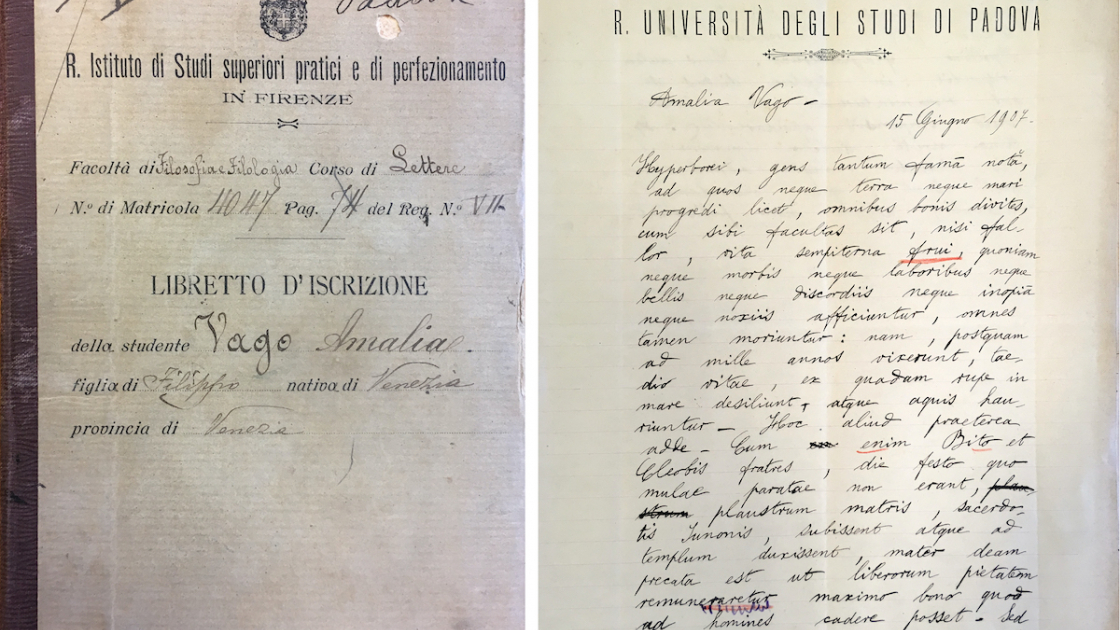 R. Istituto di Studi superiori pratici e di perfezionamento
IN FIRENZE
Facoltà di Filosofia e Filologia Corso di Lettere
N.º di Matricola 4047 Pag. 74 del Reg. N.º VII
LIBRETTO D'ISCRIZIONE
della studente Vago Amalia.
figlia di Filippo nativa di Venezia
provincia di Venezia
R. UNIVERSITÀ DEGLI STUDI DI PADOVA
Amalia Vago -
15 Giugno 1907.
Hyperborei, gens tantum famā notă,
ad quos neque terra neque mari
progredi licet, omnibus bonis divites,
cum sibi facultas sit, nisi fal-
lor, vita sempiterna frui, quoniam
neque morbis neque laboribus neque
bellis neque discordiis neque inopiā
neque noxiis afficiuntur, omnes
tamen moriuntur: nam, postquam
ad mille annos vixerunt, tae-
dio vitae, ex quadam rupe in
mare desiliunt, atque aquis hau-
riuntur - Hoc aliud praeterea
adde - Cum enim Bito et
Cleobis fratres, die festo quo
mulae paratae non erant, plau-
strum plaustrum matris, sacerdo-
tis Iunonis, subissent atque ad
templum duxissent, mater deam
precata est ut liberorum pietatem
remuneraretur maximo bono quod
ad homines cadere posset - Sed